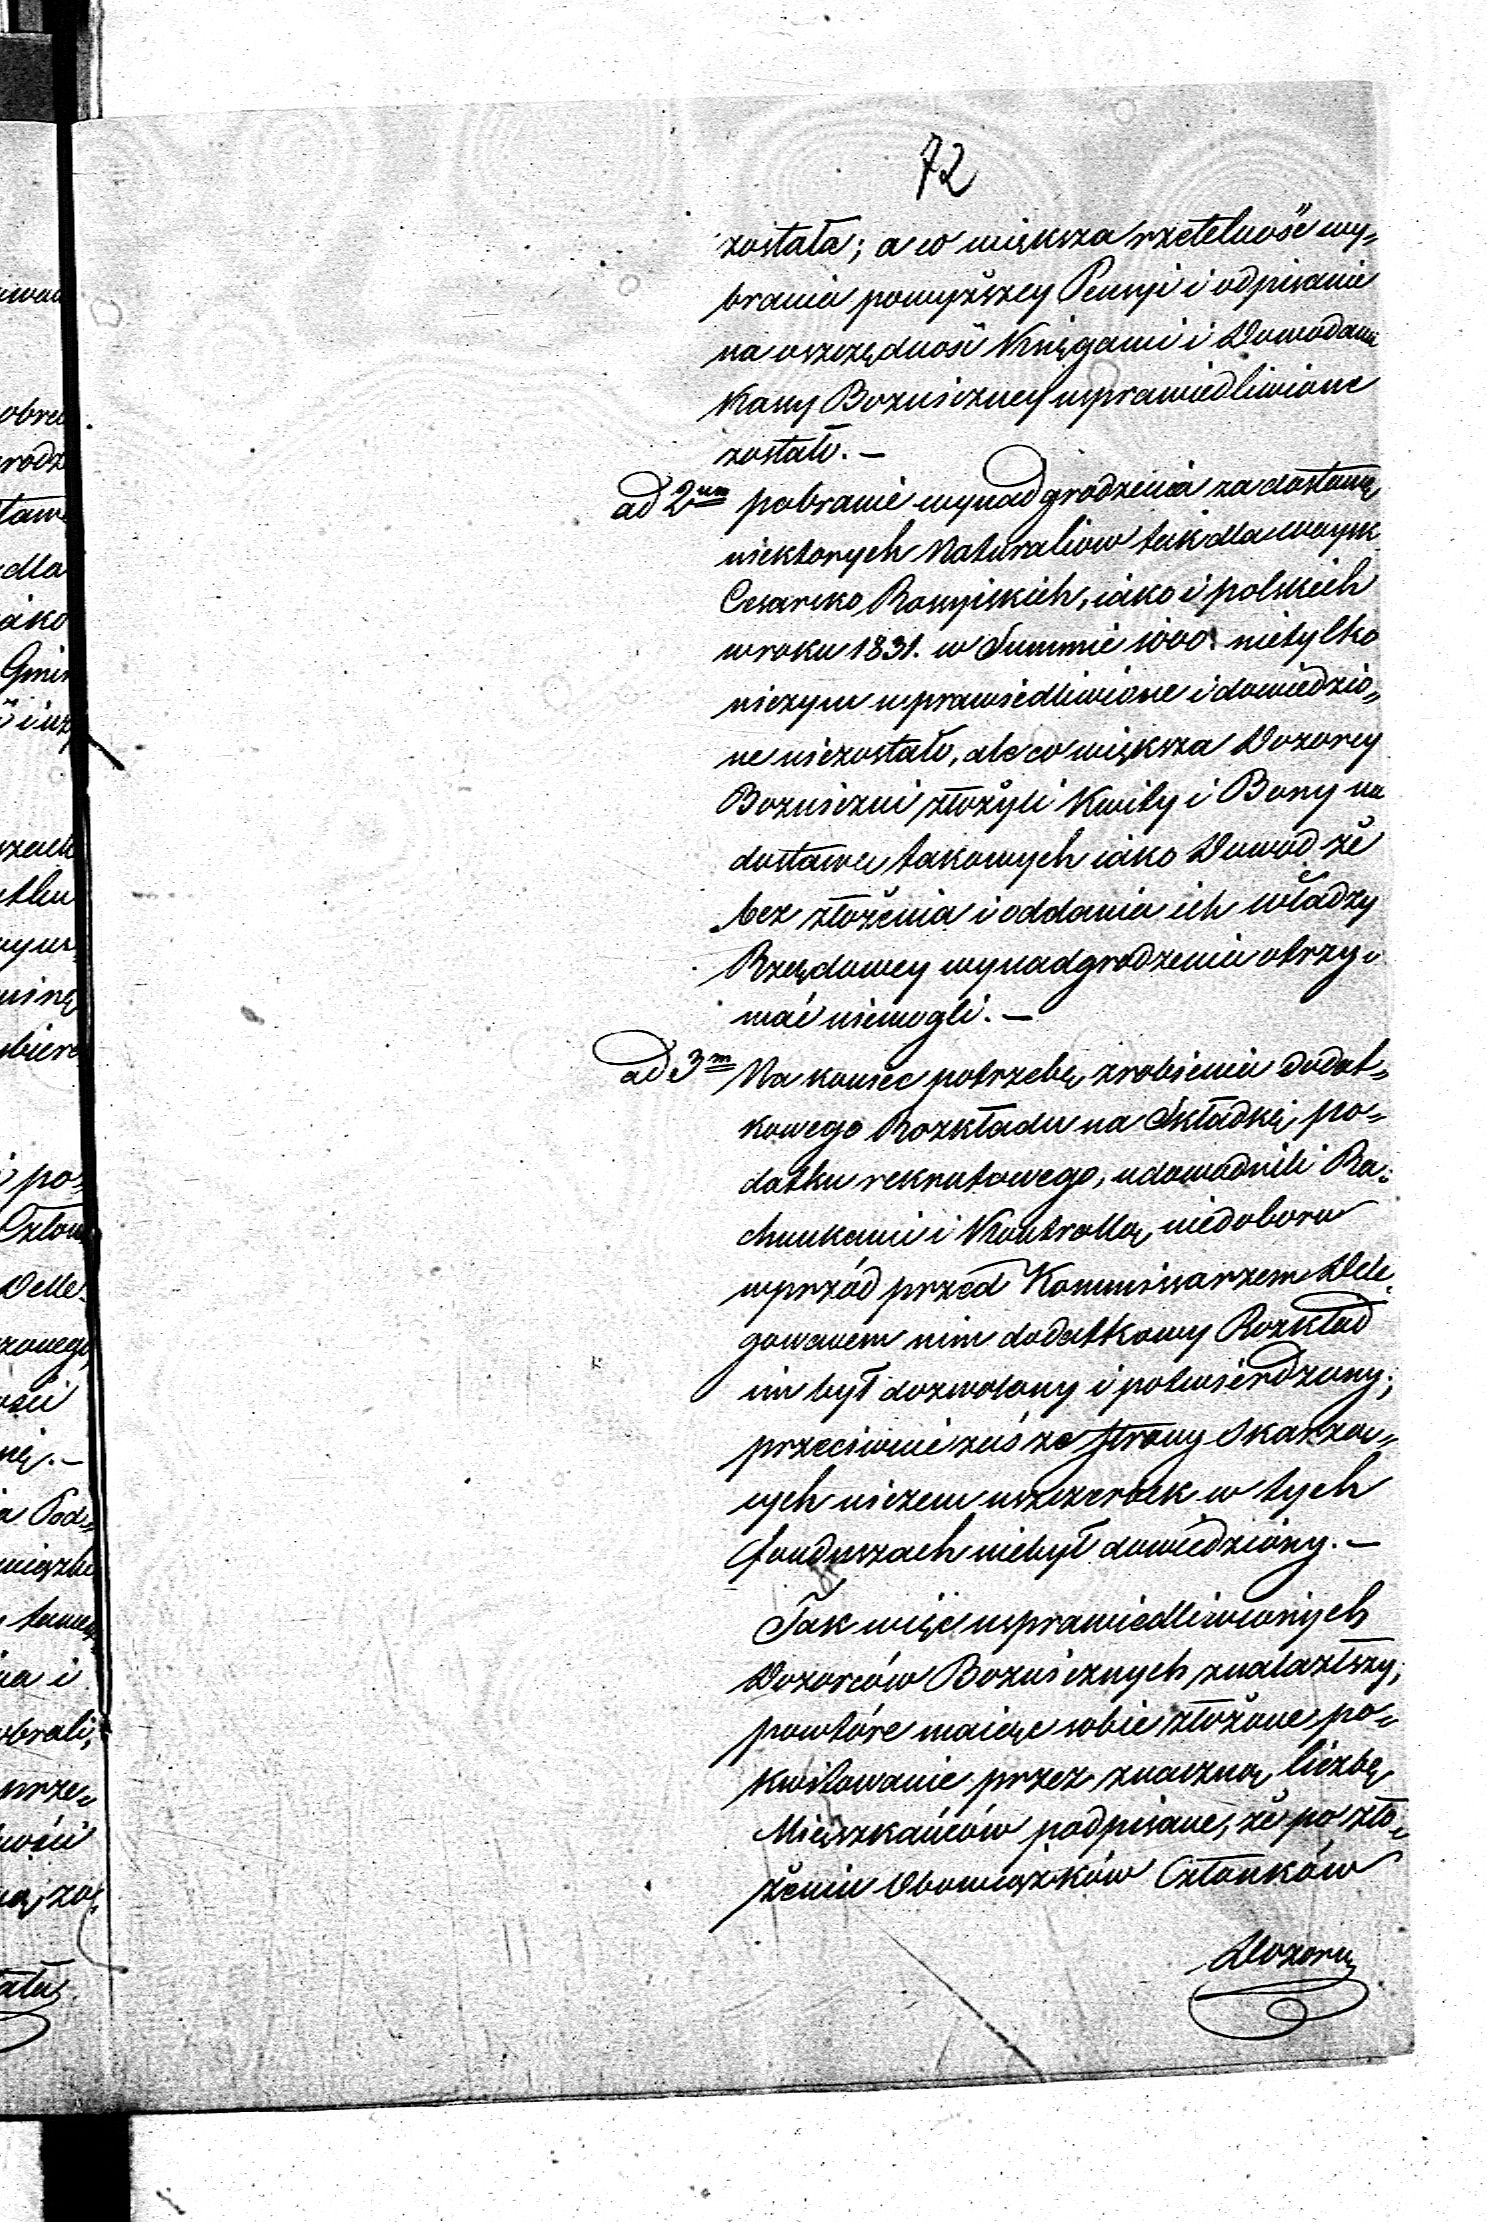 72
została; a co większa rzetelność wy„
brania powyższey Pensyi i odpisanie
na oszczędność Księgami i Dowodami
Kassy Bożniczney usprawiedliwione
zostało. —
ad 2um pobranie wynadgrodzenia za dostawę
niektorych Naturaliow tak dla woysk
Cesarsko Rossyiskich, iako i polskich
w roku 1831. w Summie 1000. nietylko
niczym usprawiedliwione i dowiedzio„
ne niezostało, ale co większa Dozorcy
Bozniczni złożyli Kwity i Bony na
dostawe takowych iako Dowod że
bez złożenia i oddania ich władzy
Rządowey wynadgrodzenia otrzy„
mać niemogli. —
ad 3m Na koniec potrzebę zrobienia dodat„
kowego Rozkładu na Składkę po„
datku rekrutowego, udowodnili Ra„
chunkami i Kontrollą niedoboru
wprzód przed Kommissarzem Dele„
gowanem nim dodatkowy Rozkład
im był dozwolony i potwierdzony;
przeciwnie zaś ze strony Skarżą„
cych niczem uszczerbek w tych
funduszach niebył dowiedziony. —
Tak więc usprawiedliwionych
Dozorców Bożnicznych znalazłszy;
powtóre maiąc sobie złożone po„
kwitowanie przez znaczną liczbę
Mieszkańców podpisane, że po zło„
żeniu Obowiązków Członków
Dozoru